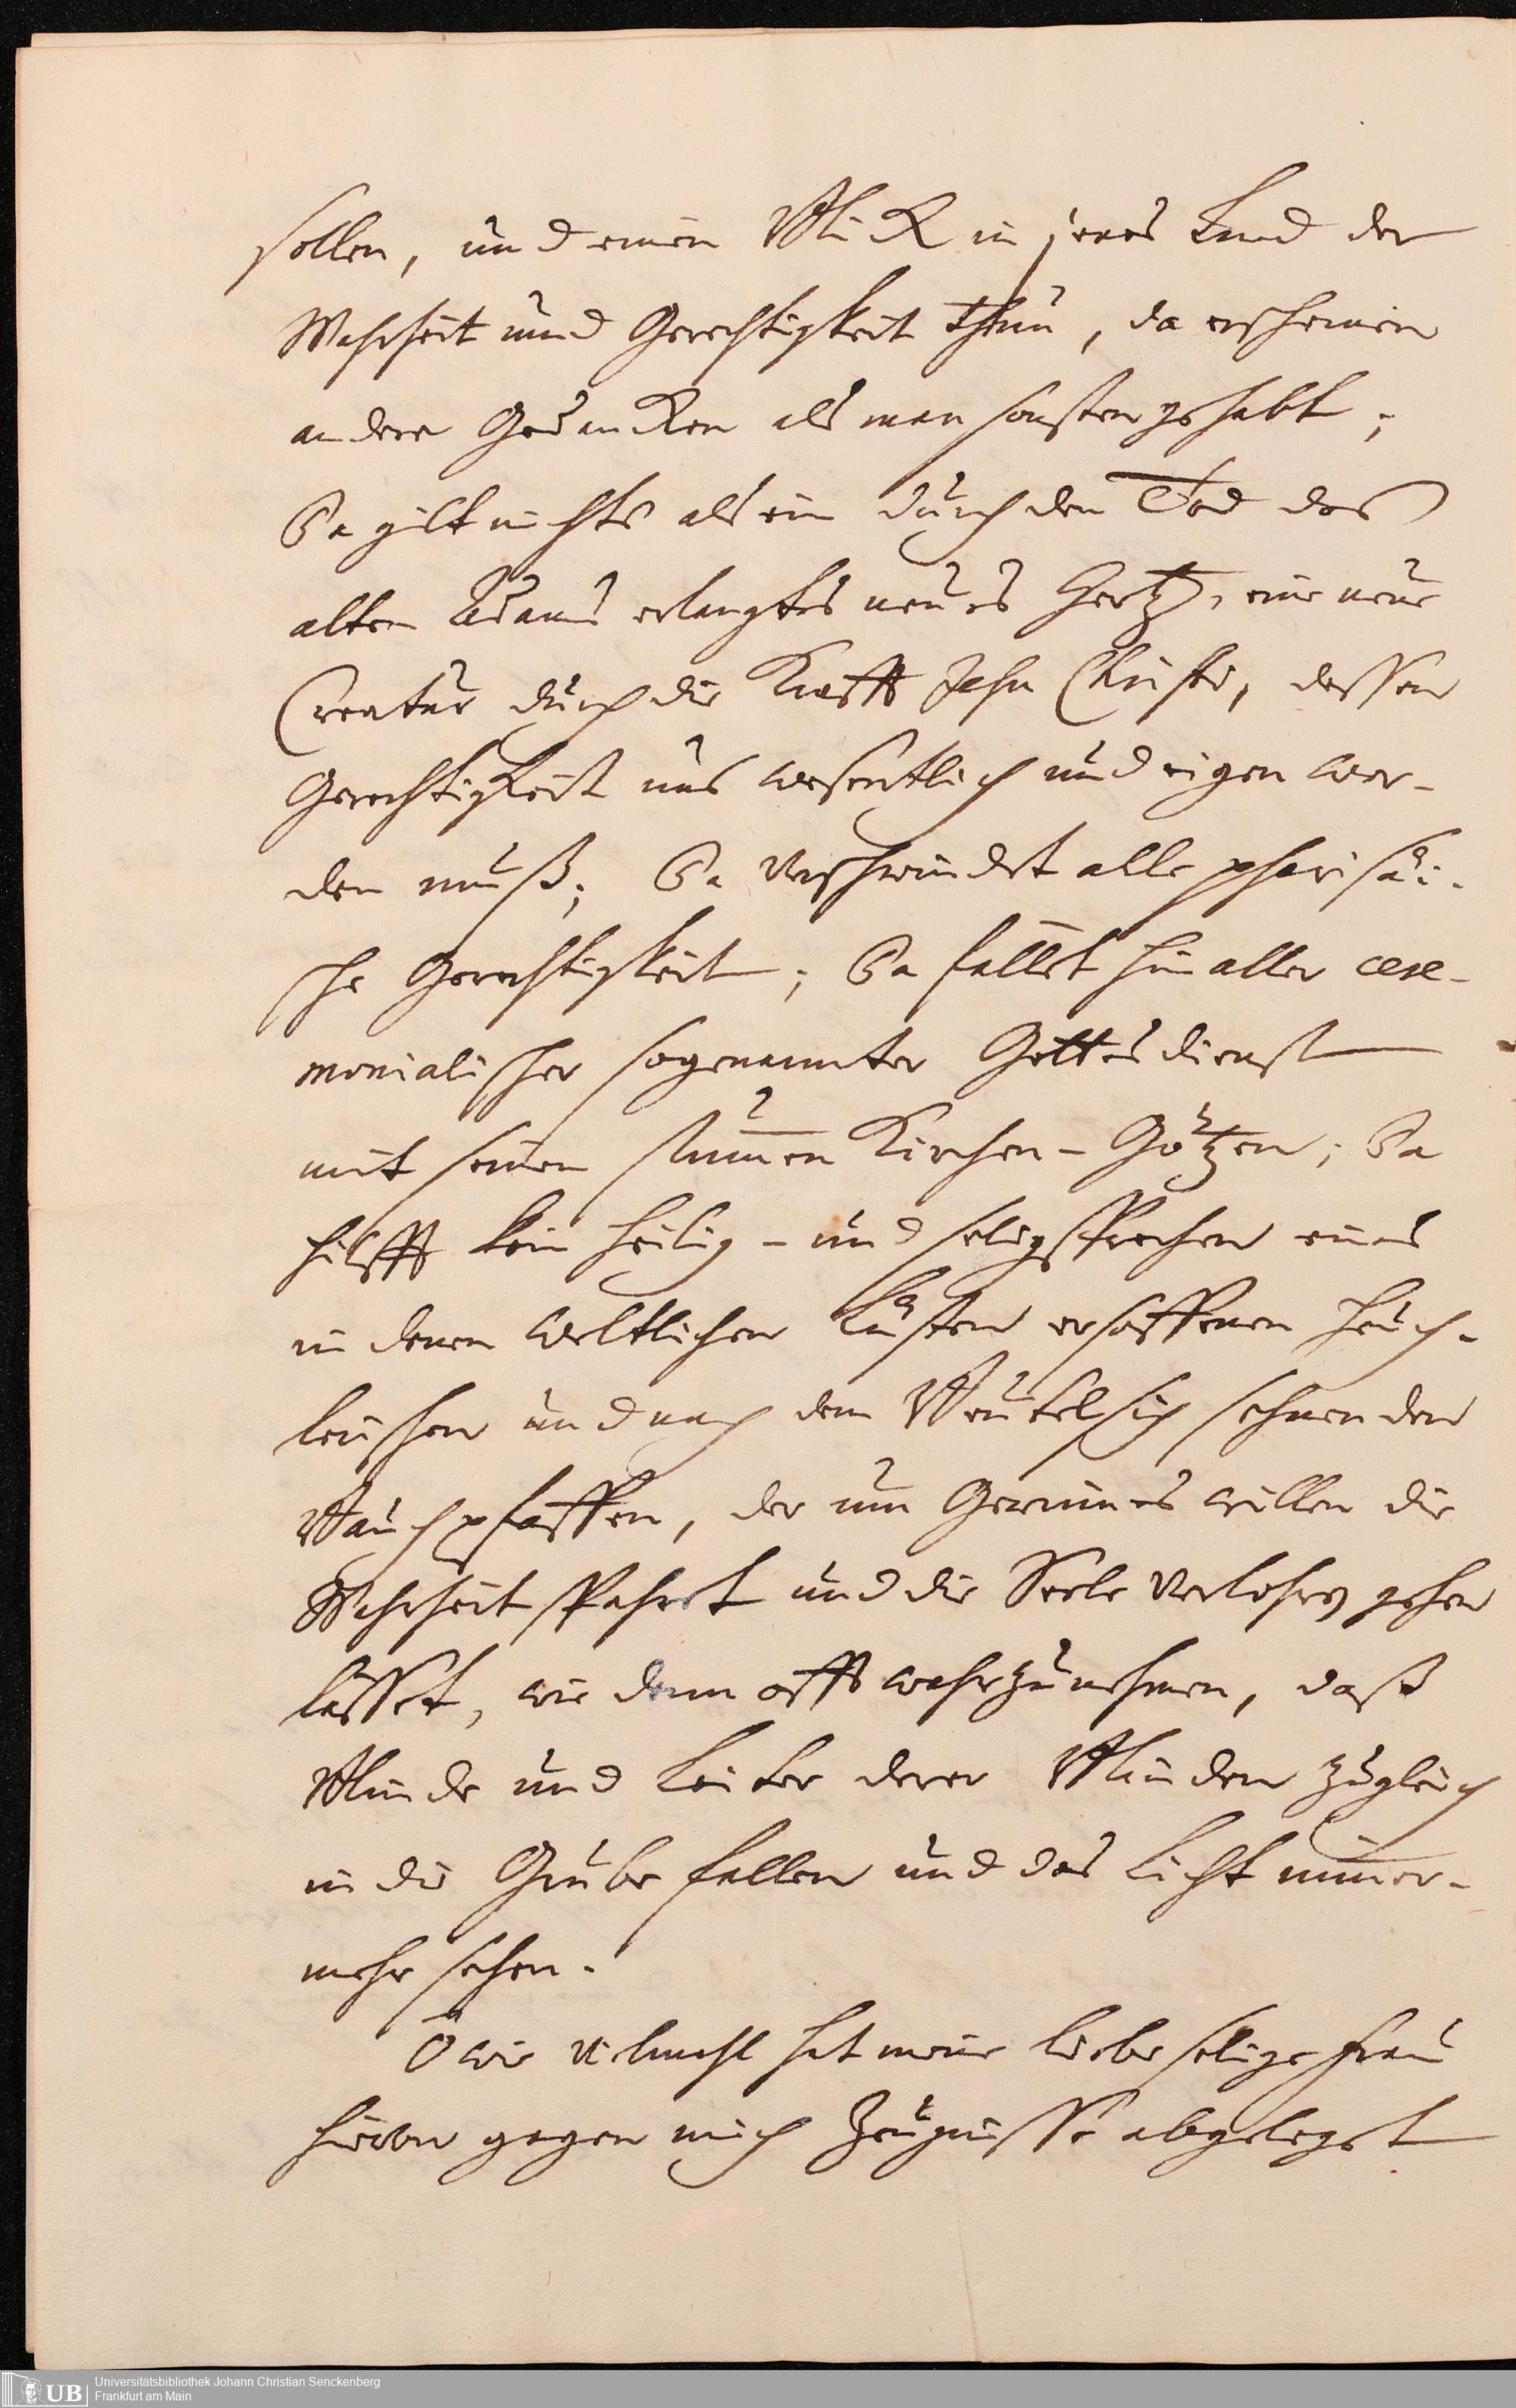 sollen, und einen Blick in jenes Land der
Wahrheit und Gerechtigkeit thun, da erscheinen
andere Gedancken als man sonsten gehabt;
Da gilt nichts als ein durch den Tod des
alten Adams erlangtes neues Hertz, eine neue
Creatur durch die Krafft Jesu Christi, dessen
Gerechtigkeit uns wesentlich und eigen wer-
den muß; Da verschwindet alle pharisäi-
sche Gerechtigkeit; Da fället hin aller cere-
monialischer sogenannter Gottesdienst
mit seinen stum̅en Kirchen-Götzen; Da
hilfft kein heilig- und seligsprechen eines
in denen weltlichen Lüsten ersoffenen heuch-
lerischen und nach dem Beutel sich sehnenden
Bauchpfaffen, der um Gewinnes willen die
Wahrheit spahret und die Seele verlohren gehen
lässet, wie denn offt wahrzunehmen, daß
Blinde und Leiter derer Blinden zugleich
in die Grube fallen und das Licht nim̅er-
mehr sehen.
O wie vielmahl hat meine liebe selige Frau
hievon gegen mich Zeugnisse abgeleget
UB Universitätsbibliothek Johann Christian Senckenberg
Frankfurt am Main